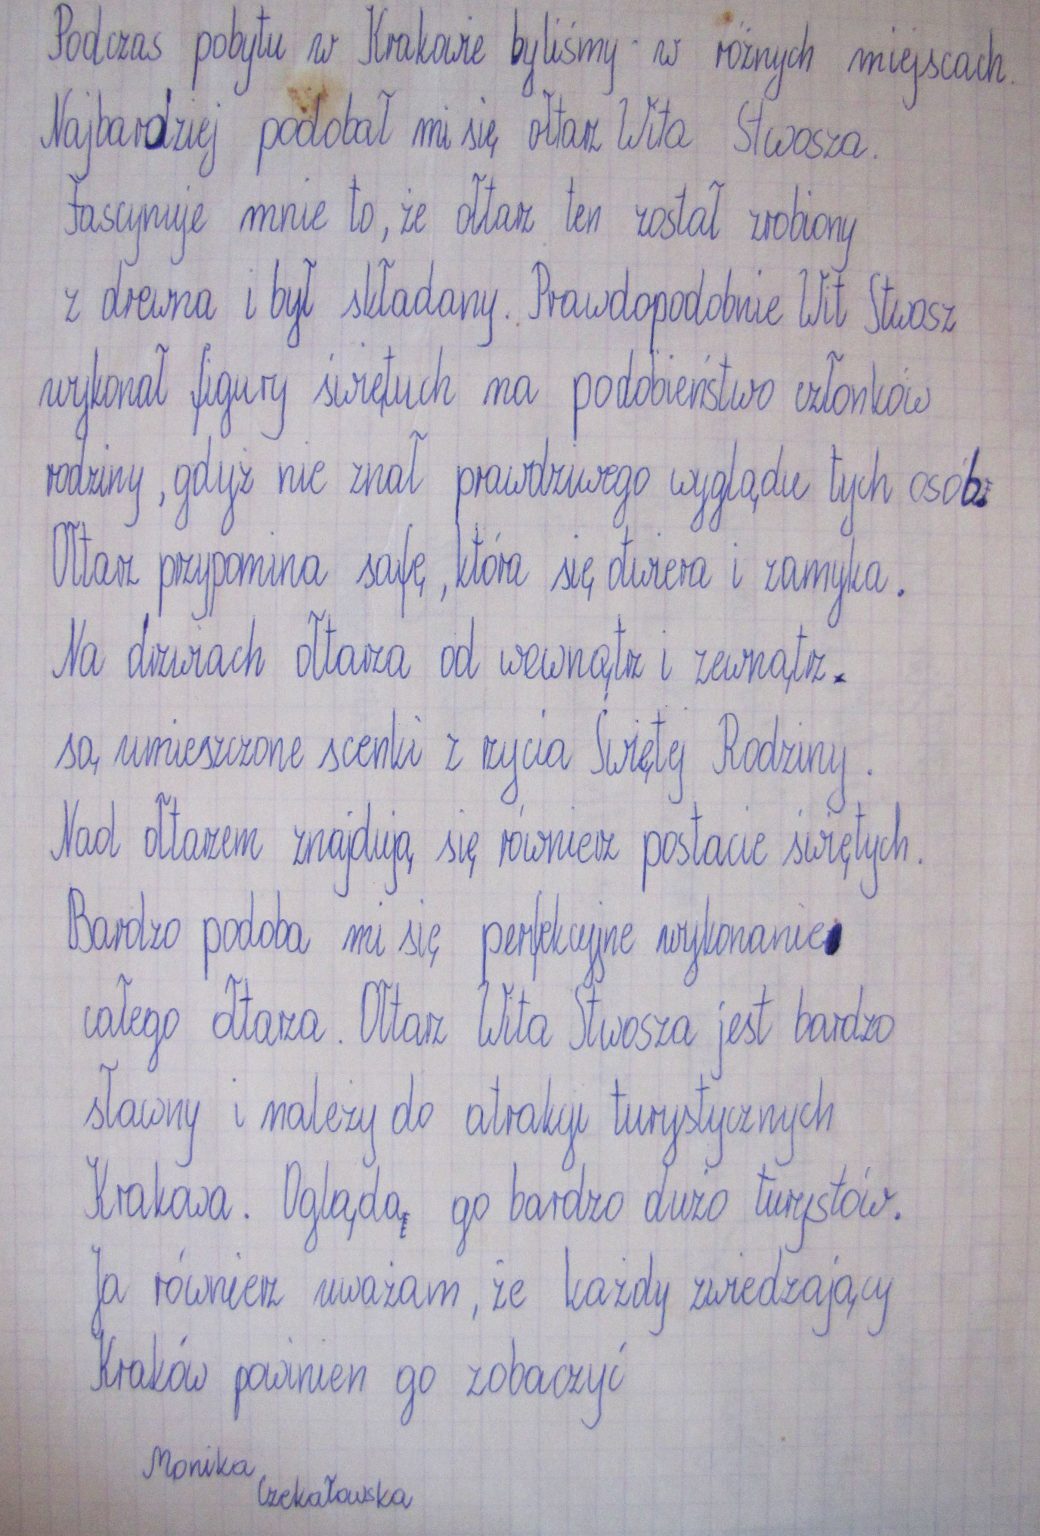 Podczas pobytu w Krakowie byliśmy w różnych miejscach.
Najbardziej podobał mi się ołtarz Wita Stwosza.
Fascynuje mnie to, że ołtarz ten został zrobiony
z drewna i był składany. Prawdopodobnie Wit Stwosz
wykonał figury świętych na podobieństwo członków
rodziny, gdyż nie znał prawdziwego wyglądu tych osób.
Ołtarz przypomina safę, która się otwiera i zamyka.
Na drzwiach ołtarza od wewnątrz i zewnątrz
są umieszczone scenki z rzycia Świętej Rodziny.
Nad ołtarzem znajdują się równierz postacie świętych.
Bardzo podoba mi się perfekcyjne wykonanie
całego ołtarza. Ołtarz Wita Stwosza jest bardzo
sławny i należy do atrakcji turystycznych
Krakowa. Ogląda go bardzo dużo turystów.
Ja równierz uważam, że każdy zwiedzający
Kraków powinien go zobaczyć
Monika
Czekałowska